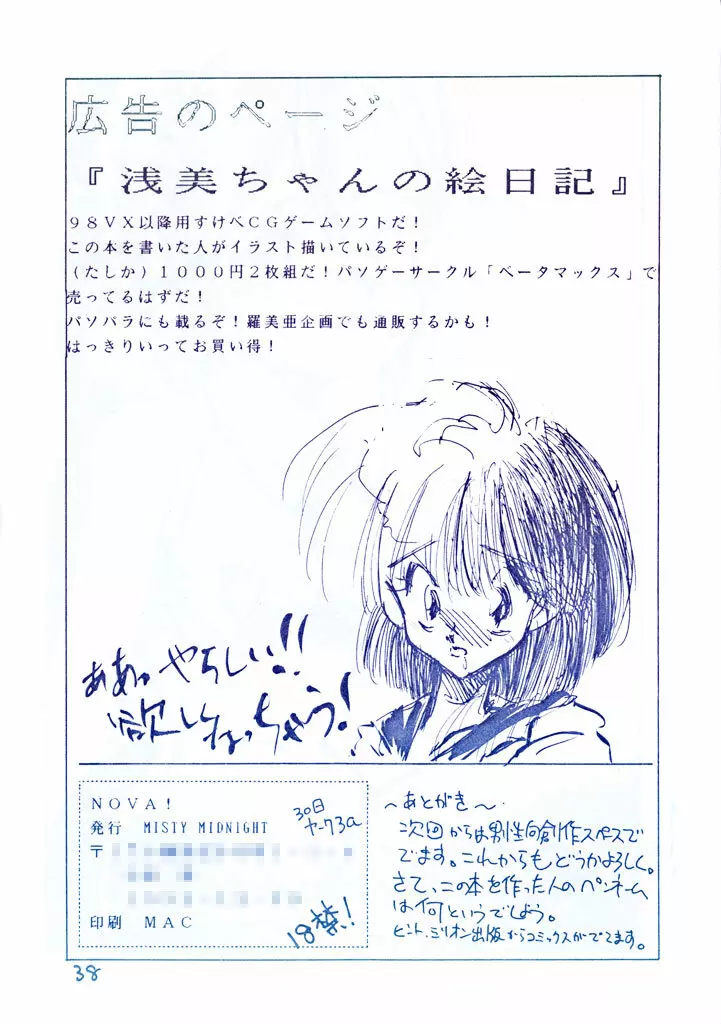 広告のページ
『浅美ちゃんの絵日記』
98VX以降用すけべCGゲームソフトだ!
この本を書いた人がイラスト描いているぞ!
(たしか)1000円2枚組だ!パソゲーサークル「ベータマックス」で
売ってるはずだ!
パソパラにも載るぞ!羅美亜企画でも通販するかも!
はっきりいってお買い得!
ああっやらしい!!
欲しくなっちゃう!
NOVA!
発行 MISTY MIDNIGHT
〒
印刷 MAC
30日
ヤ-73a
18禁!
〜あとがき〜
次回からは男性向創作スペースで
でます。これからもどうかよろしく。
さて、この本を作った人のペンネーム
は何というでしょう。
ヒント、ミリオン出版からコミックスがでてます。
38